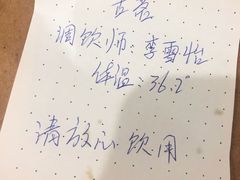 古茗
调饮师：李雪怡
体温：36.2°
请放心饮用